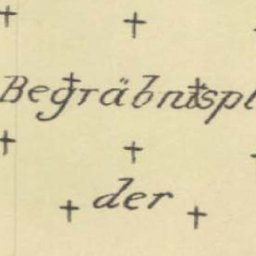 Begräbnispl
der